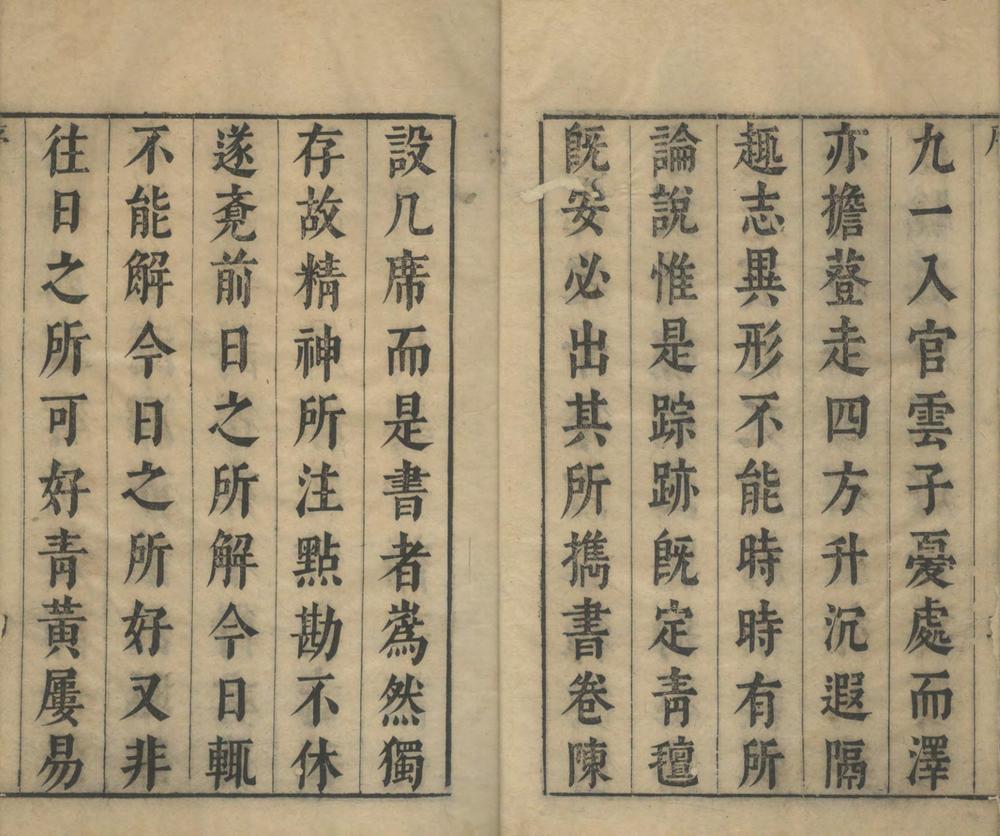 九一入官雲子憂處而澤
亦擔簦走四方升沉遐隔
趣志異形不能時時有所
論說惟是踪跡旣定靑氊
旣安必出其所携書卷陳
設几席而是書者嶲然獨
存故精神所注點勘不休
遂竟前日之所解今日輒
不能解今日之所好又非
徃日之所可好靑黃屢易